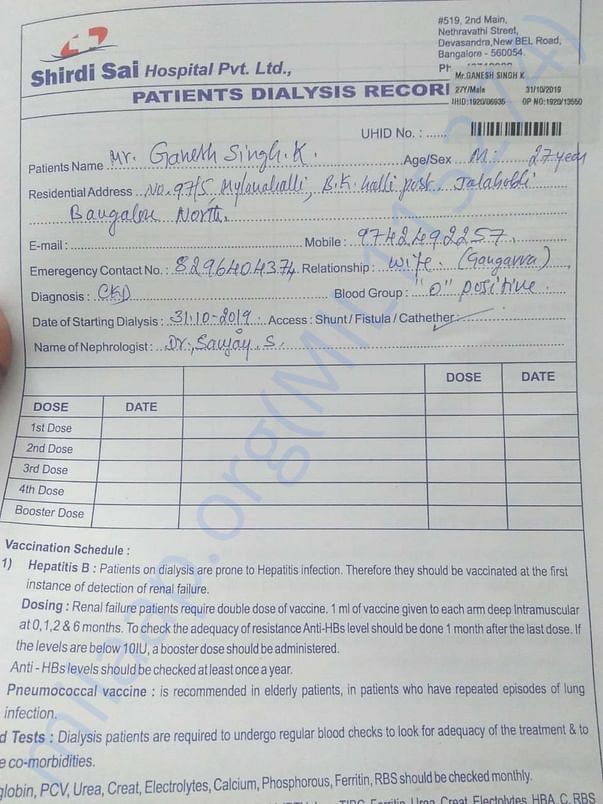 #519, 2nd Main,
Nethravathi Street,
Devasandra, New BEL Road,
Bangalore - 560054.
Shirdi Sai Hospital Pvt. Ltd.,
Mr.GANESH SINGH K
27Y/Male 31/10/2019
UHID:1920/06935 OP NO:1920/13550
PATIENTS DIALYSIS RECOR
UHID No. : ......
Patients Name Mr. Ganesh Singh.K. Age/Sex M: 27 year
Residential Address No. 97/5, Mylanahalli, B.K. halli post. Jalahobli
Bangalore North.
E-mail : Mobile : 9742492257.
Emeregency Contact No. : 8296404374 Relationship : wife. (Gangavva)
Diagnosis : CKD Blood Group : "O" positive.
Date of Starting Dialysis : 31.10-2019. Access : Shunt / Fistula / Cathether
Name of Nephrologist : Dr. Sanjay. S.
DOSE DATE
DOSE DATE
1st Dose
2nd Dose
3rd Dose
4th Dose
Booster Dose
Vaccination Schedule :
1) Hepatitis B : Patients on dialysis are prone to Hepatitis infection. Therefore they should be vaccinated at the first
instance of detection of renal failure.
Dosing : Renal failure patients require double dose of vaccine. 1 ml of vaccine given to each arm deep Intramuscular
at 0,1,2 & 6 months. To check the adequacy of resistance Anti-HBs level should be done 1 month after the last dose. If
the levels are below 10IU, a booster dose should be administered.
Anti - HBs levels should be checked at least once a year.
Pneumococcal vaccine : is recommended in elderly patients, in patients who have repeated episodes of lung
infection.
d Tests : Dialysis patients are required to undergo regular blood checks to look for adequacy of the treatment & to
e co-morbidities.
globin, PCV, Urea, Creat, Electrolytes, Calcium, Phosphorous, Ferritin, RBS should be checked monthly.
TIBC, Ferritin, Urea, Creat, Electolytes, HBA, C, RBS